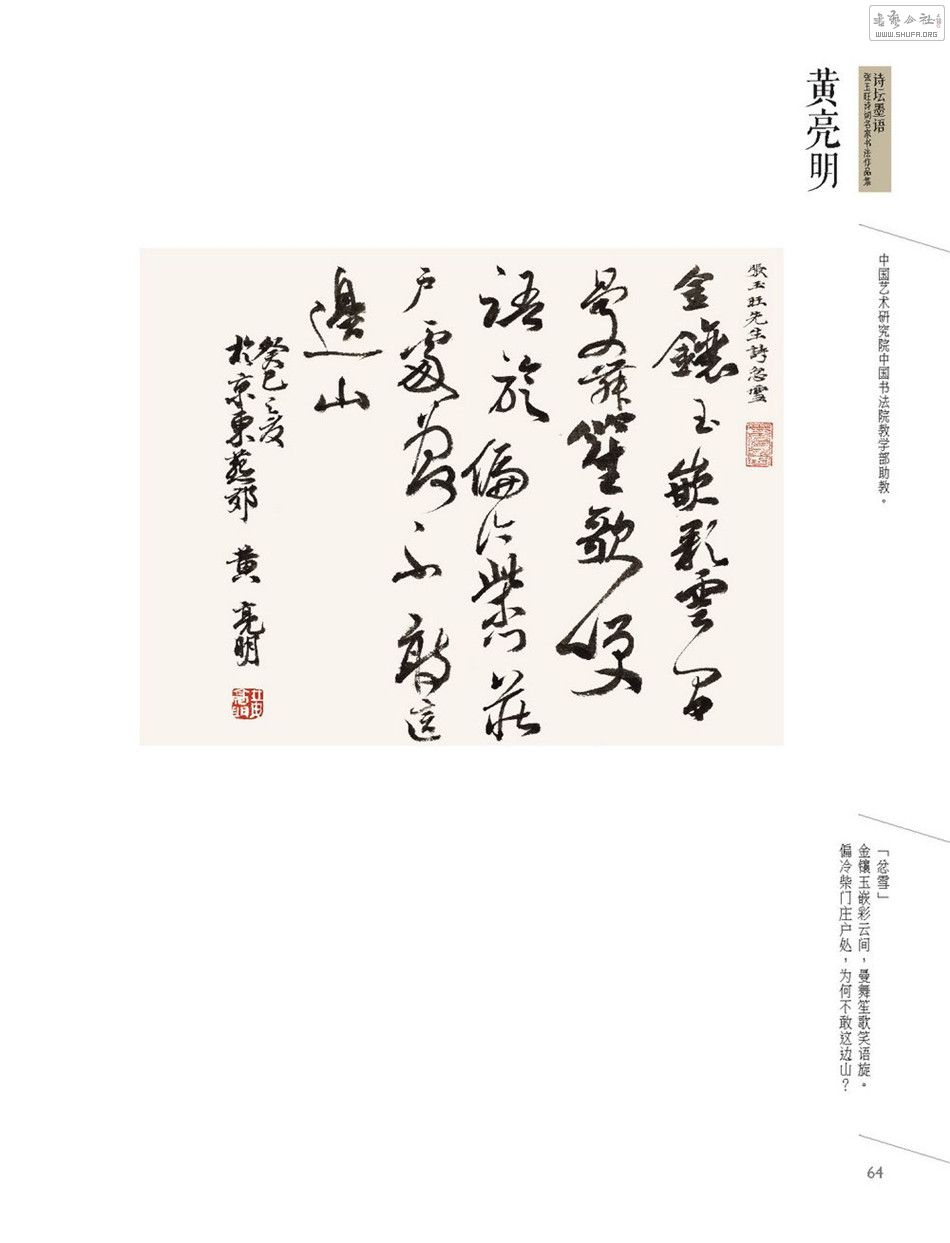 書藝公社
WWW.SHUFA.ORG
诗坛墨语
张玉旺诗词名家书法作品集
黄亮明
中国艺术研究院中国书法院教学部助教。
張玉旺先生詩忿雪
金鑲玉嵌彩雲间
曼舞笙歌笑
語旋偏冷柴门莊
户處为何不敢這
邊山
癸巳之夏
於京東燕郊 黄亮明
「忿雪」
金镶玉嵌彩云间，曼舞笙歌笑语旋。
偏冷柴门庄户处，为何不敢这边山？
64